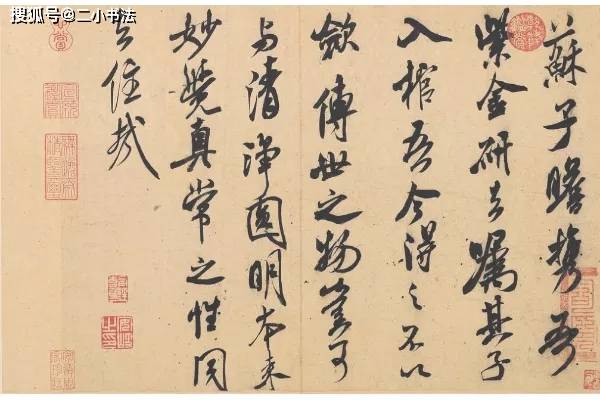 搜狐号@二小书法
蘇子瞻携吾
紫金研去嘱其子
入棺吾今得之不以
斂傳世之物豈可
与清淨圓明本来
妙覺真常之性同
去住哉